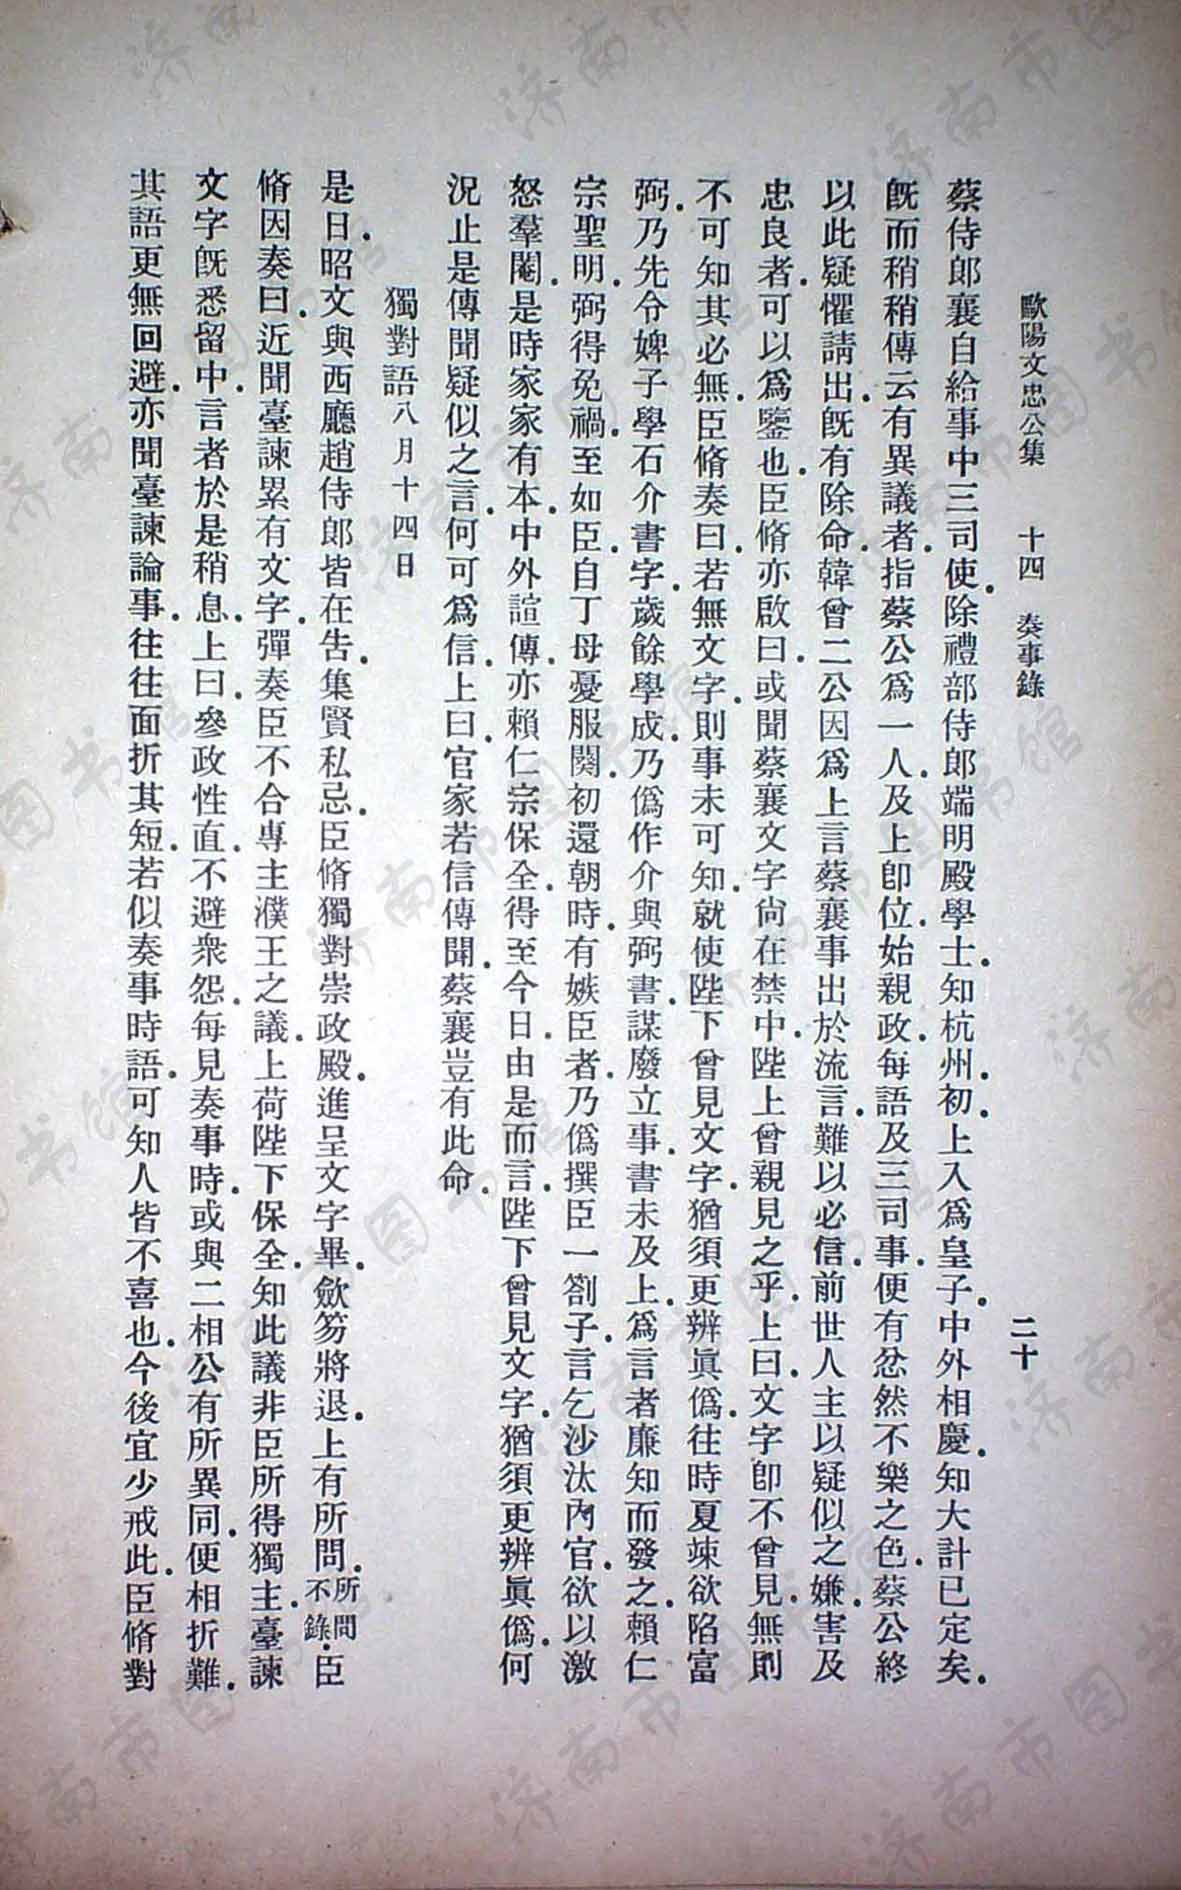 歐陽文忠公集 十四 奏事錄 二十
蔡侍郎襄自給事中三司使.除禮部侍郎端明殿學士.知杭州.初.上入爲皇子.中外相慶.知大計已定矣.
旣而稍稍傳云有異議者.指蔡公爲一人.及上卽位.始親政.每語及三司事.便有忿然不樂之色.蔡公終
以此疑懼請出.旣有除命.韓曾二公因爲上言蔡襄事出於流言.難以必信.前世人主以疑似之嫌.害及
忠良者.可以爲鑒也.臣脩亦啟曰.或聞蔡襄文字尙在禁中.陛上曾親見之乎.上曰.文字卽不曾見.無則
不可知其必無.臣脩奏曰.若無文字.則事未可知.就使陛下曾見文字.猶須更辨眞僞.往時夏竦欲陷富
弼.乃先令婢子學石介書字.歲餘學成.乃僞作介與弼書.謀廢立事.書未及上.爲言者廉知而發之.賴仁
宗聖明.弼得免禍.至如臣.自丁母憂服闋.初還朝時.有嫉臣者.乃僞撰臣一劄子.言乞沙汰內官.欲以激
怒羣閹.是時家家有本.中外諠傳.亦賴仁宗保全.得至今日.由是而言.陛下曾見文字.猶須更辨眞僞.何
況止是傳聞疑似之言.何可爲信.上曰.官家若信傳聞.蔡襄豈有此命.
獨對語八月十四日
是日.昭文與西廳趙侍郎皆在告.集賢私忌.臣脩獨對崇政殿.進呈文字畢.斂笏將退.上有所問.所問不錄.臣
脩因奏曰.近聞臺諫累有文字.彈奏臣不合專主濮王之議.上荷陛下保全.知此議非臣所得獨主.臺諫
文字旣悉留中.言者於是稍息.上曰.參政性直.不避衆怨.每見奏事時.或與二相公有所異同.便相折難.
其語更無回避.亦聞臺諫論事.往往面折其短.若似奏事時語.可知人皆不喜也.今後宜少戒此.臣脩對
济南市图书馆